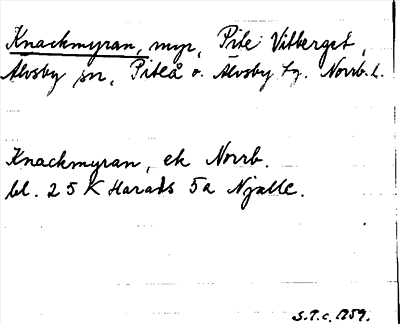 Knackmyran, myr, Pite Vitberget,
Älvsby sn, Piteå o. Älvsby tg. Norrb. l.
Knackmyran, ek Norrb.
bl. 25 K Harads 5a Njalle.
S.T.c. 1959.